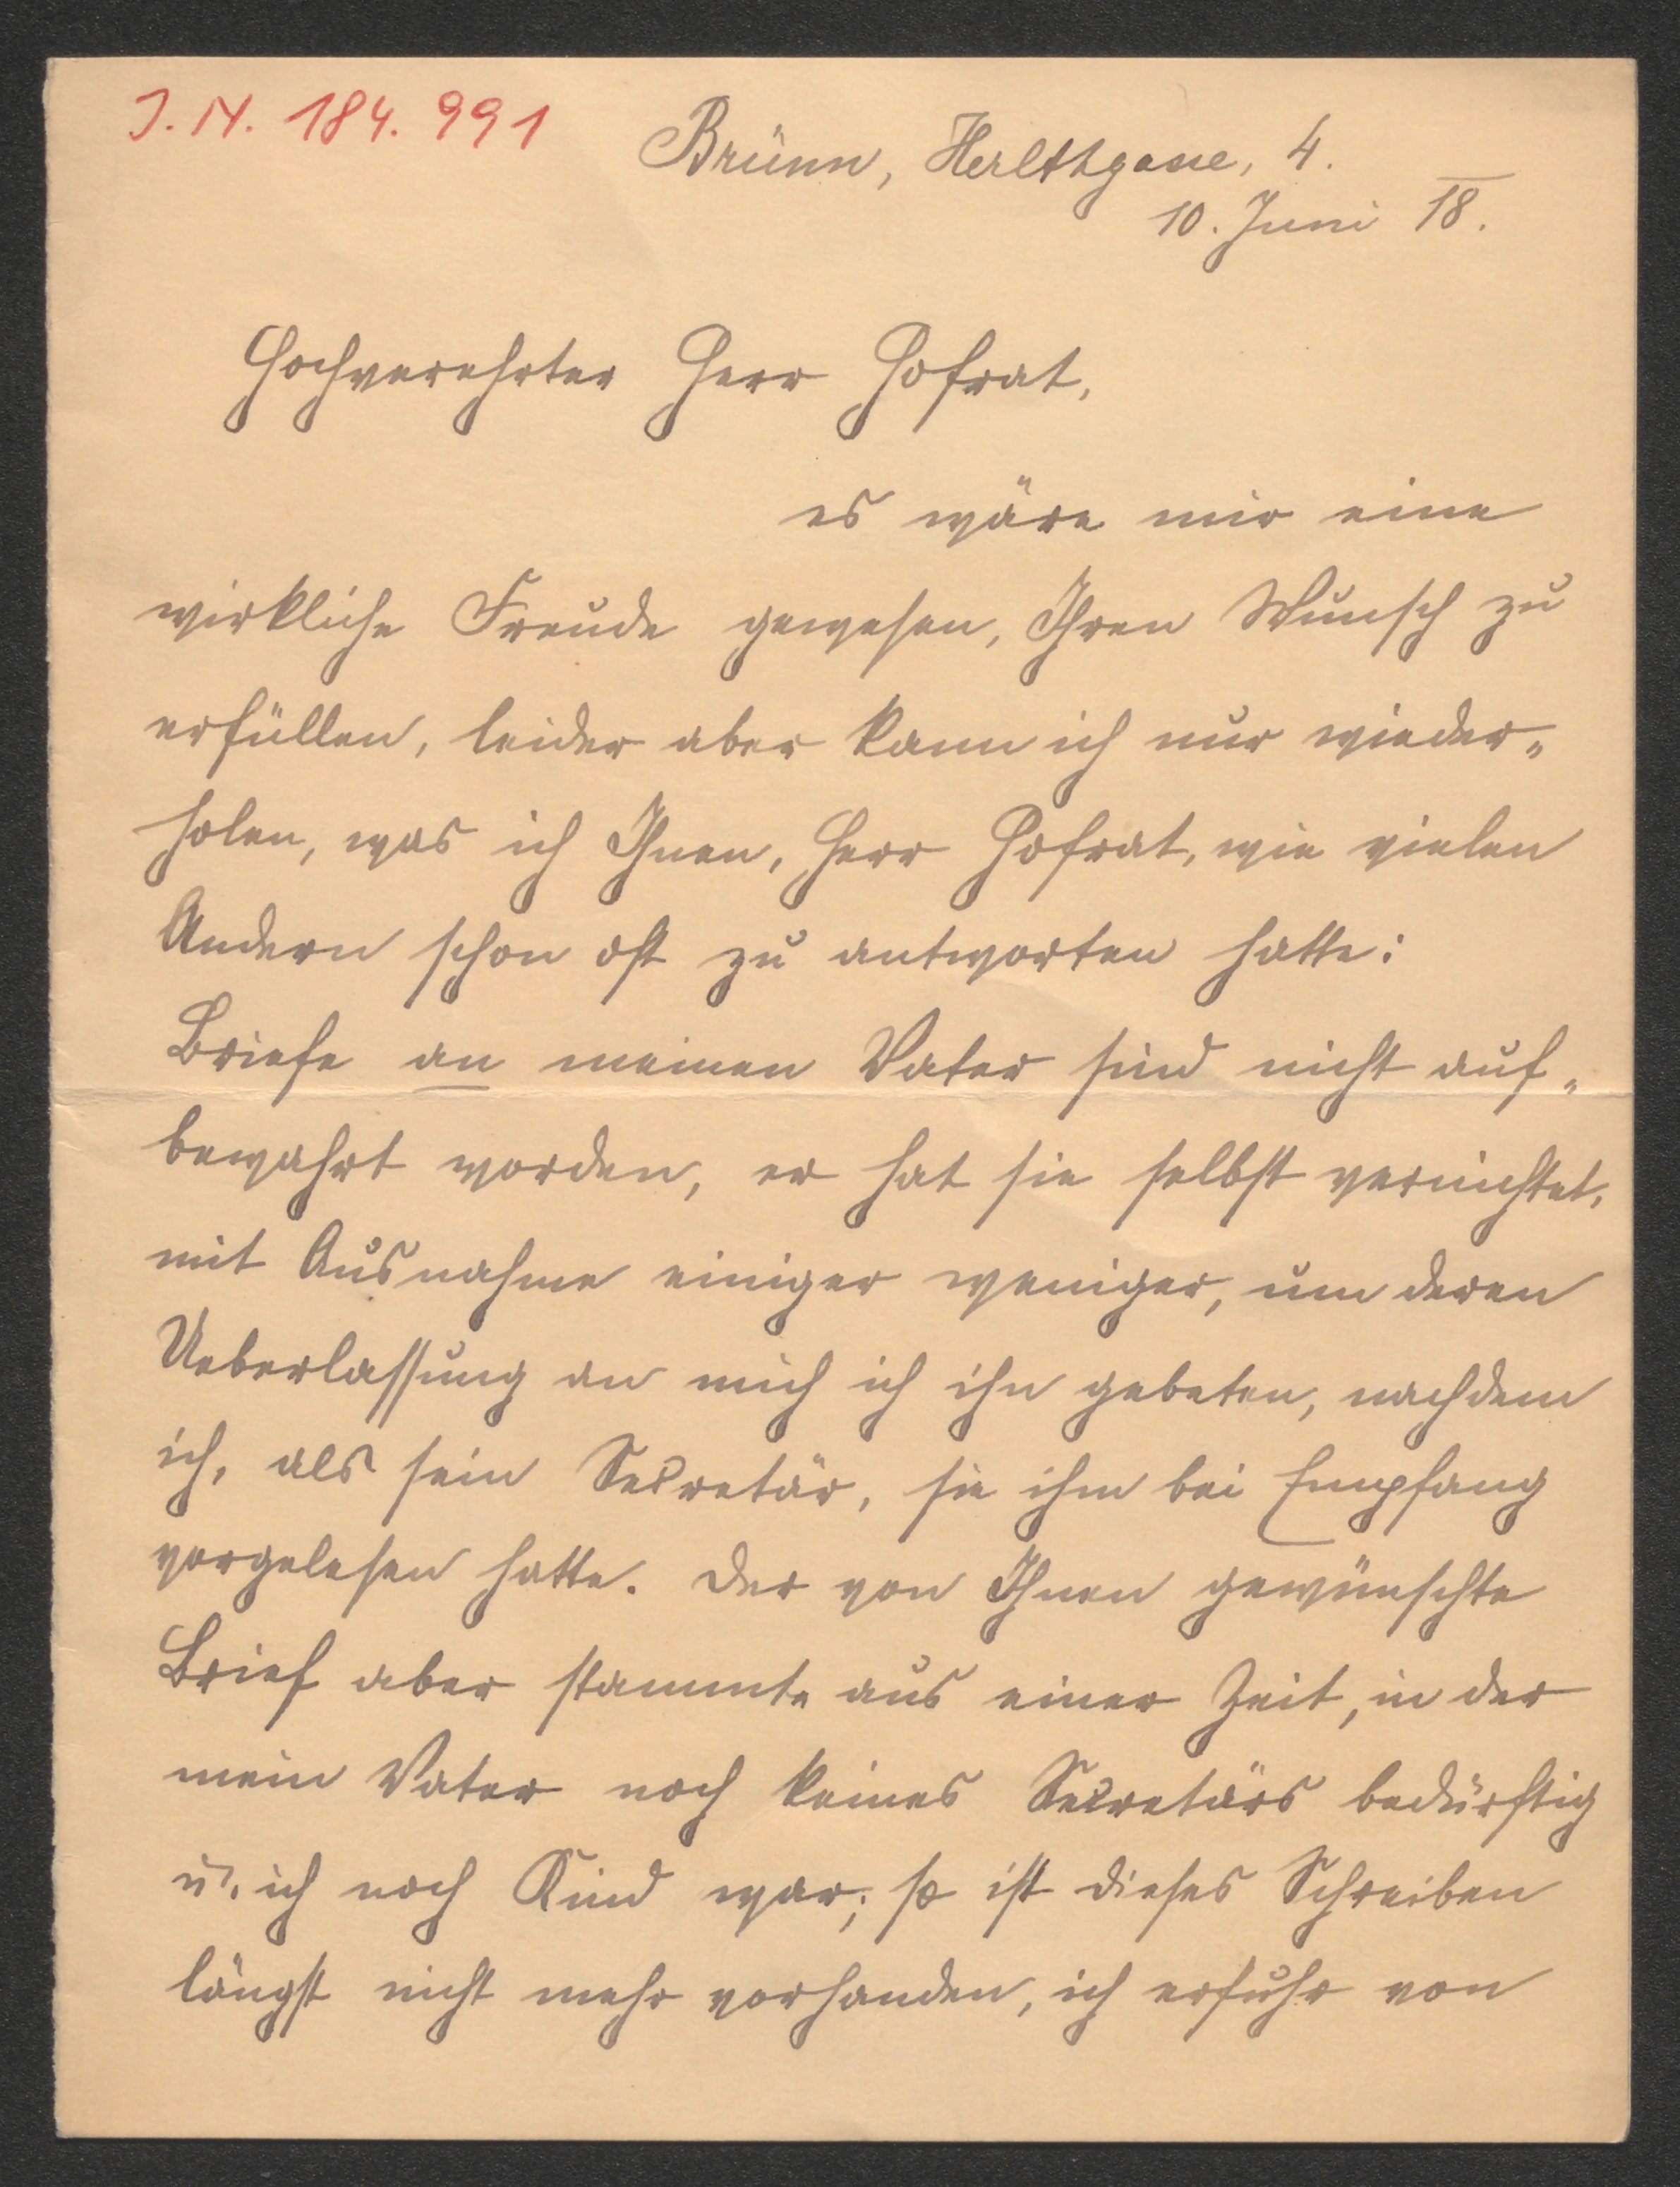 J. N. 184.991
Brünn, Herlthgasse, 4.
10. Juni 18.
Hochverehrter Herr Hofrat,
es wäre mir eine
wirkliche Freude gewesen, Ihren Wunsch zu
erfüllen, leider aber kann ich nur wieder„
holen, was ich Ihnen, Herr Hofrat, wie vielen
Andern schon oft zu antworten hatte:
Briefe an meinen Vater sind nicht auf„
bewahrt worden, er hat sie selbst vernichtet,
mit Ausnahme einiger weniger, um deren
Ueberlassung an mich ich ihn gebeten, nachdem
ich, als sein Secretär, sie ihm bei Empfang
vorgelesen hatte. Der von Ihnen gewünschte
Brief aber stammte aus einer Zeit, in der
mein Vater noch keines Secretärs bedürftig
u. ich noch Kind war; so ist dieses Schreiben
längst nicht mehr vorhanden, ich erfuhr von